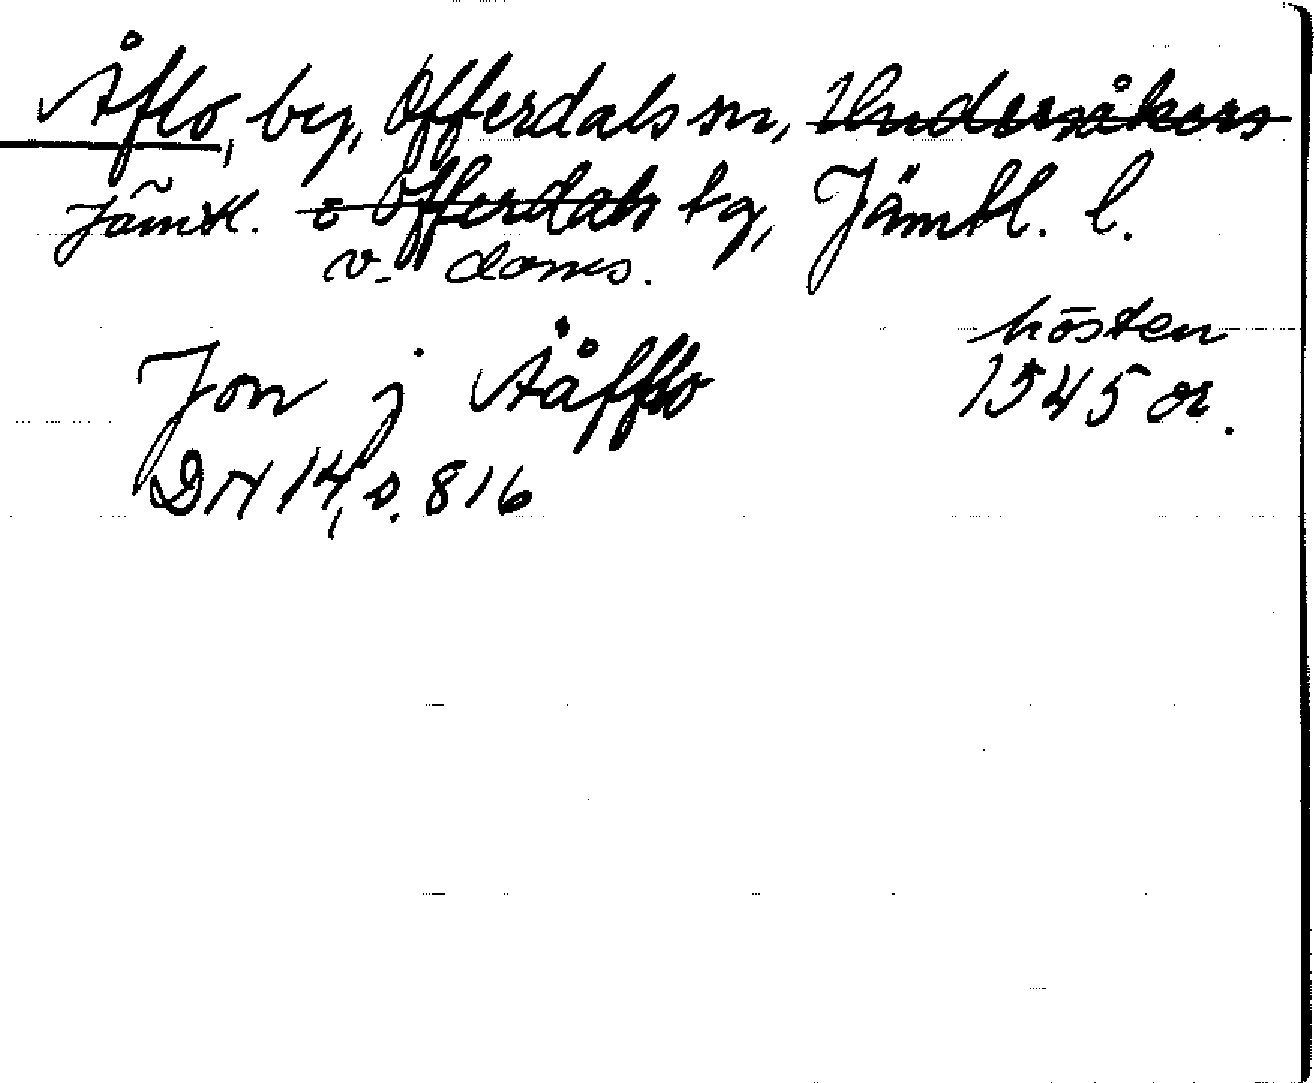 Åflo, by, Offerdals sn, Undersåkers
Jämtl. o Offerdals tg, Jämtl. l.
v. doms.
hösten
Jon j Aåfflo 1545 or.
DN 14, s. 816